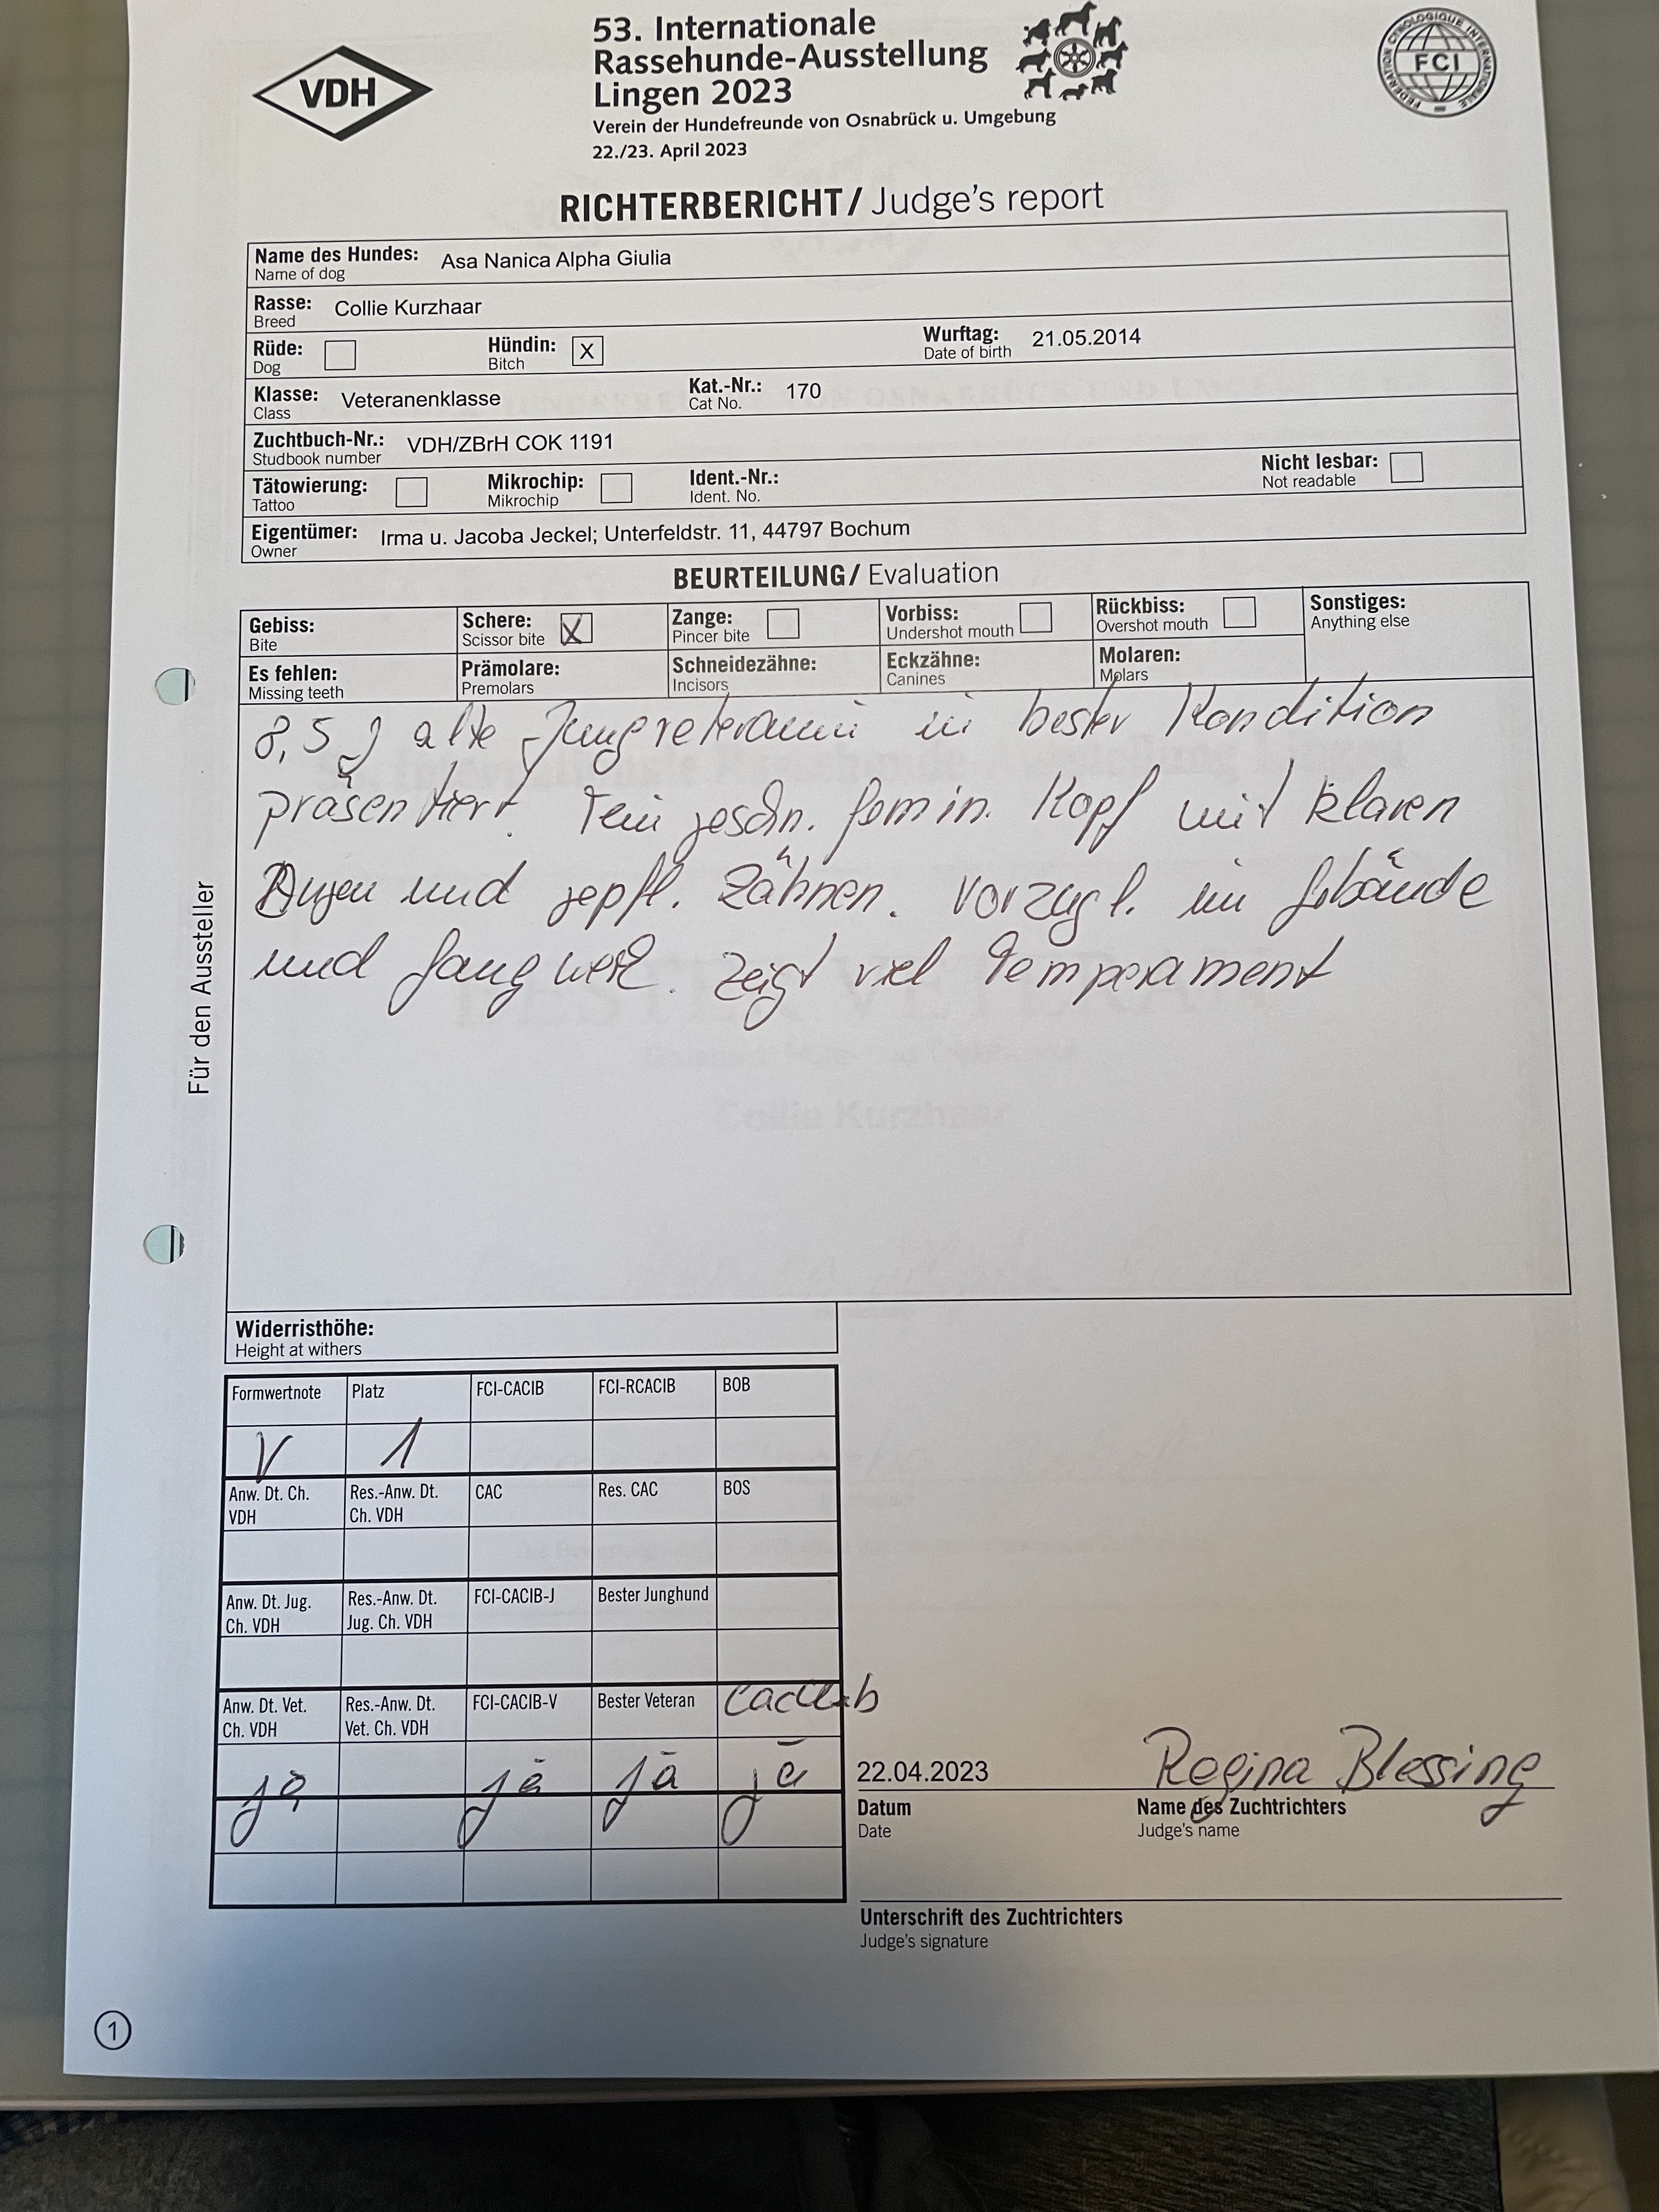 VDH
53. Internationale
Rassehunde-Ausstellung
Lingen 2023
Verein der Hundefreunde von Osnabrück u. Umgebung
22./23. April 2023
FEDERATION CYNOLOGIQUE INTERNATIONALE
FCI
RICHTERBERICHT / Judge's report
Name des Hundes: Asa Nanica Alpha Giulia
Name of dog
Rasse: Collie Kurzhaar
Breed
Rüde: Hündin: X Wurftag: 21.05.2014
Dog Bitch Date of birth
Klasse: Veteranenklasse Kat.-Nr.: 170
Class Cat No.
Zuchtbuch-Nr.: VDH/ZBrH COK 1191
Studbook number
Tätowierung: Mikrochip: Ident.-Nr.: Nicht lesbar:
Tattoo Mikrochip Ident. No. Not readable
Eigentümer: Irma u. Jacoba Jeckel; Unterfeldstr. 11, 44797 Bochum
Owner
BEURTEILUNG / Evaluation
Gebiss: Schere: X Zange: Vorbiss: Rückbiss: Sonstiges:
Bite Scissor bite Pincer bite Undershot mouth Overshot mouth Anything else
Es fehlen: Prämolare: Schneidezähne: Eckzähne: Molaren:
Missing teeth Premolars Incisors Canines Molars
8,5 J alte Jungveteranin in bester Kondition
präsentiert. Fein geschn. femin. Kopf mit klaren
Augen und gepfl. Zähnen. Vorzügl. im Gebäude
und Gangwerk. Zeigt viel Temperament
Für den Aussteller
Widerristhöhe:
Height at withers
Formwertnote Platz FCI-CACIB FCI-RCACIB BOB
V 1
Anw. Dt. Ch. VDH Res.-Anw. Dt. Ch. VDH CAC Res. CAC BOS
Anw. Dt. Jug. Ch. VDH Res.-Anw. Dt. Jug. Ch. VDH FCI-CACIB-J Bester Junghund
Anw. Dt. Vet. Ch. VDH Res.-Anw. Dt. Vet. Ch. VDH FCI-CACIB-V Bester Veteran
ja ja ja ja
22.04.2023 Regina Blessing
Datum Name des Zuchtrichters
Date Judge's name
Unterschrift des Zuchtrichters
Judge's signature
1